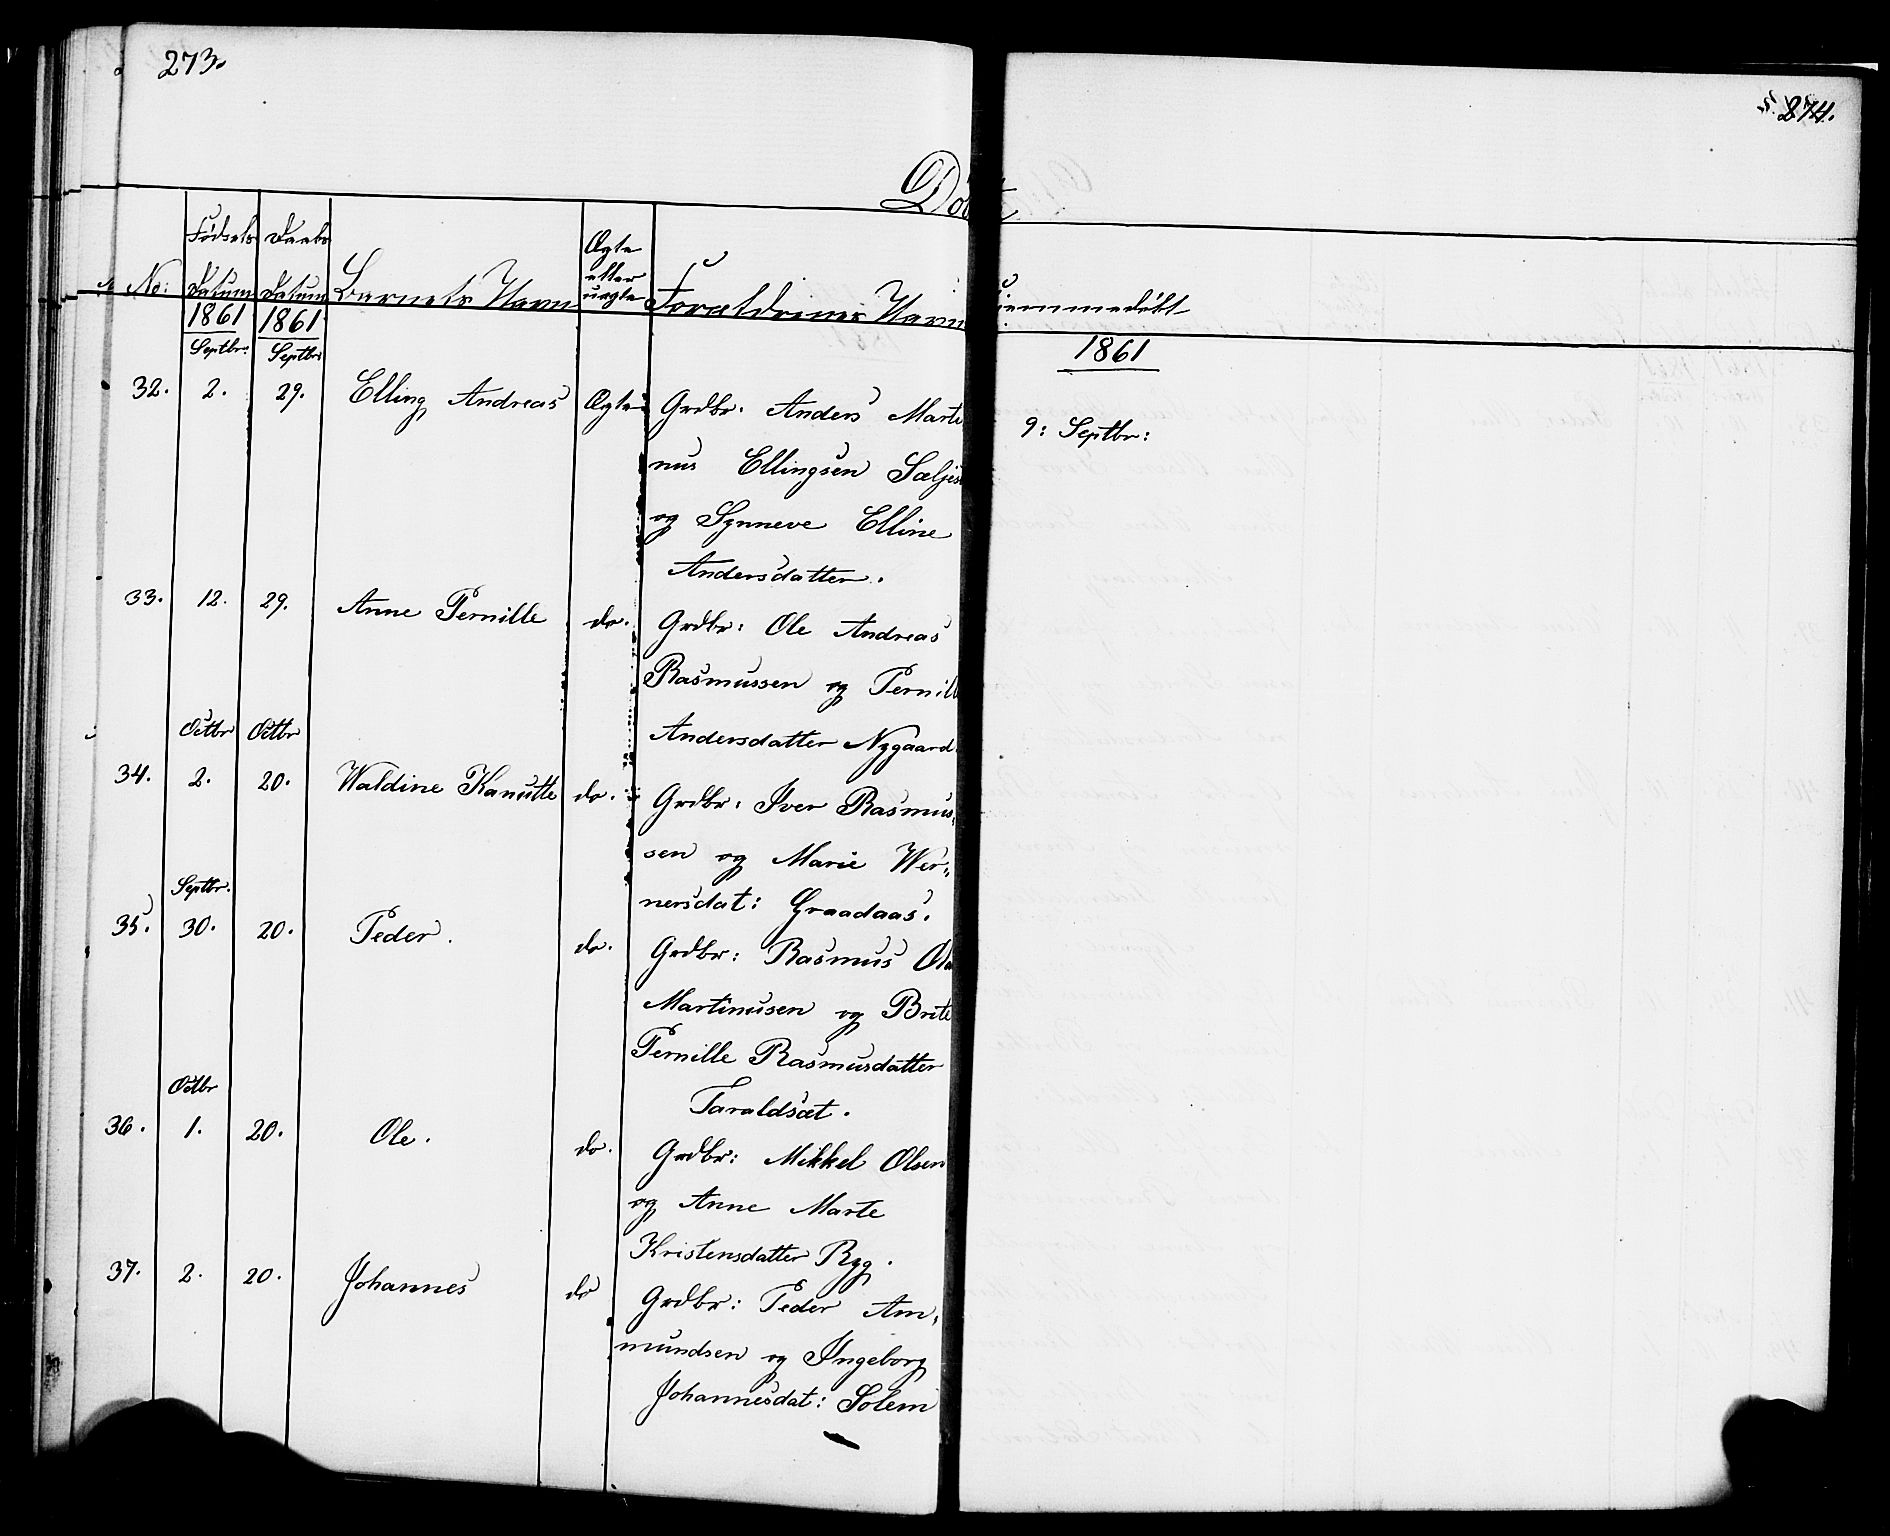 273.
274.
Døbt
No: Fødsels Datum Daabs Datum Barnets Navn Ægte eller uægte Forældrenes Navn Hjemmedøbt
1861 1861 1861
Septbr: Septbr:
32. 2. 29. Elling Andreas Ægte Grdbr. Anders Marti 9: Septbr:
nus Ellingsen Sæljes
og Synneve Elline
Andersdatter.
33. 12. 29. Anne Pernille do. Grdbr: Ole Andreas
Rasmussen og Pernille
Andersdatter Nygaard.
Octbr Octbr
34. 2. 20. Waldine Kanutte do. Grdbr: Iver Rasmus-
sen og Marie Wer-
nersdat: Graadaas.
Septbr.
35. 30. 20. Peder. do. Grdbr: Rasmus Ola
Martinusen og Brite
Pernille Rasmusdatter
Taraldsæt.
Octbr
36. 1. 20. Ole. do. Grdbr: Mikkel Olsen
og Anne Marte
Kristensdatter Ryg.
37. 2. 20. Johannes do Grdbr: Peder Am-
mundsen og Ingeborg
Johannesdat: Solem